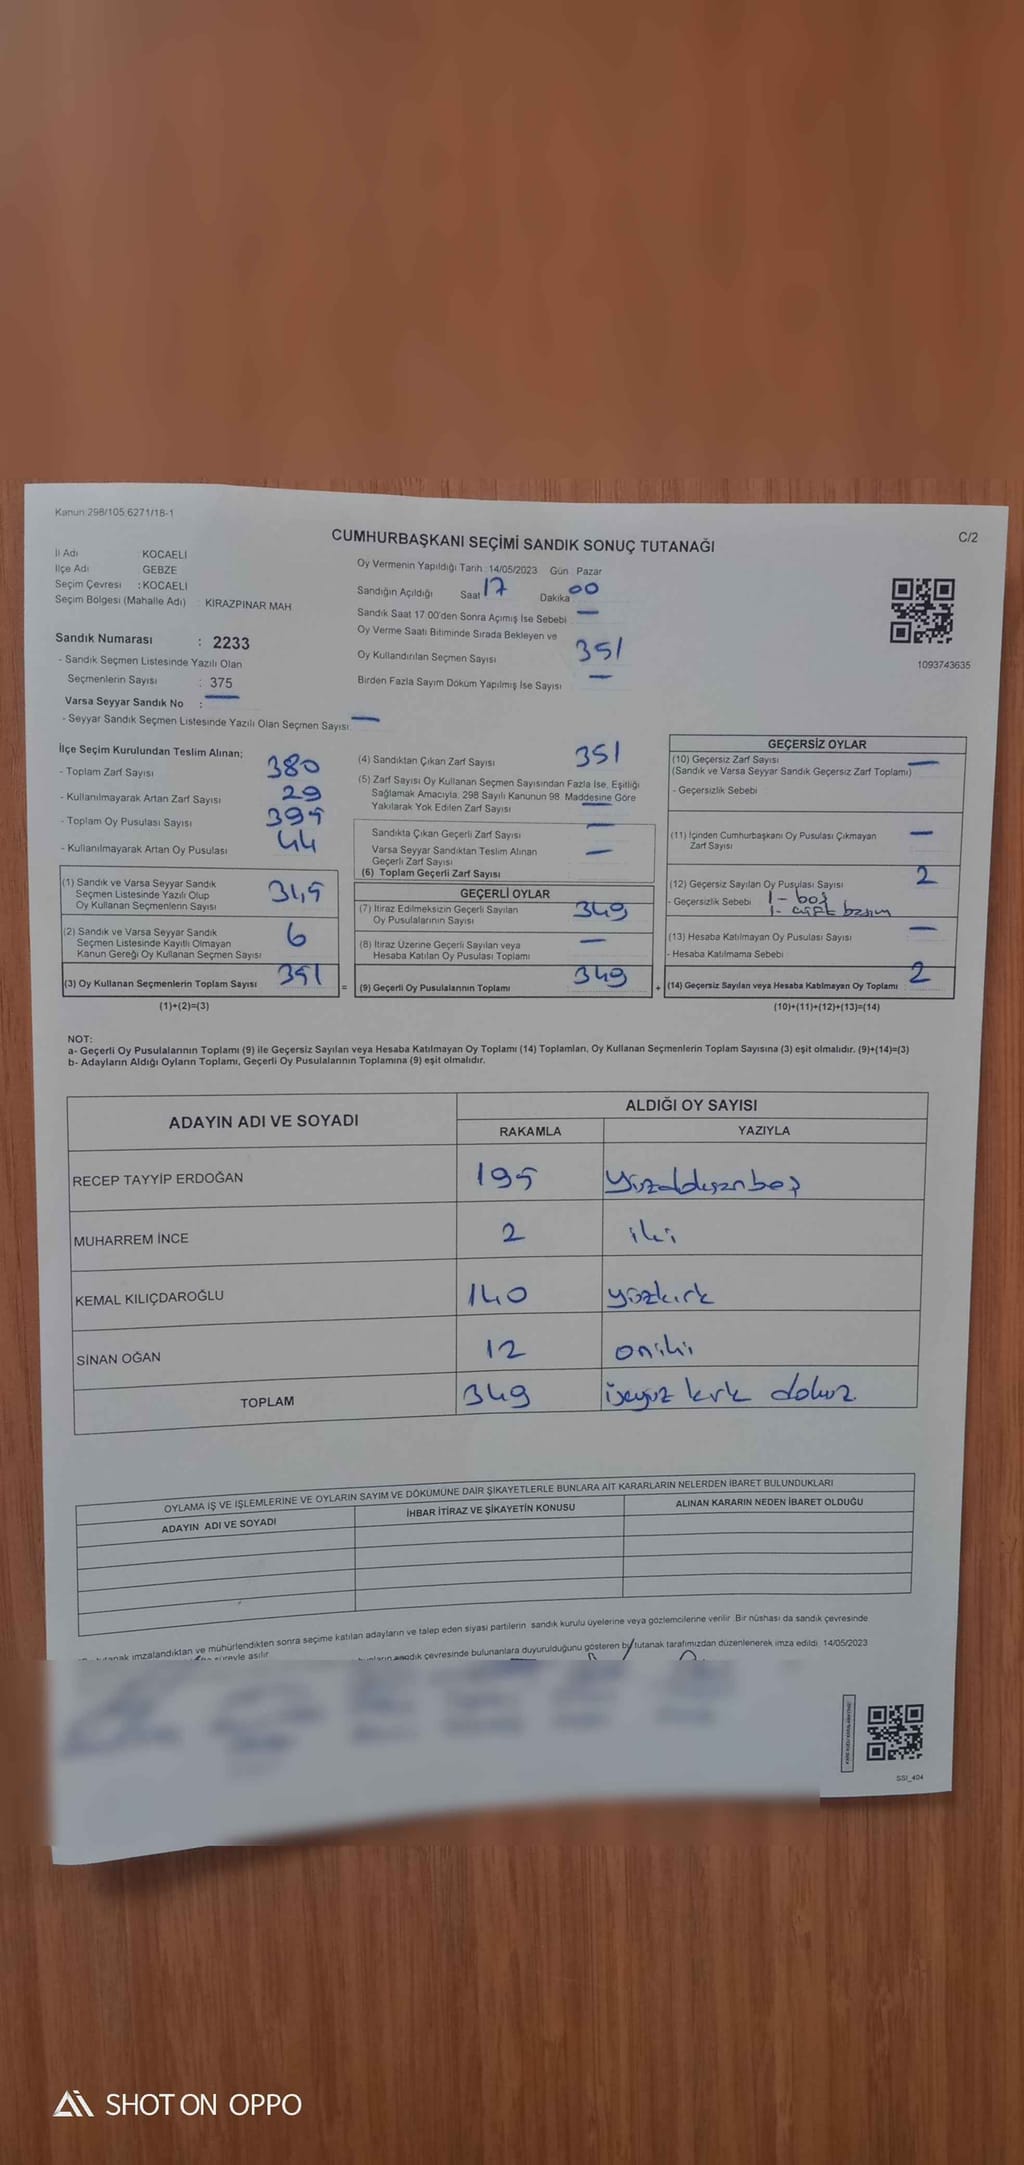 Kanun:298/105,6271/18-1
C/2
CUMHURBAŞKANI SEÇİMİ SANDIK SONUÇ TUTANAĞI
İl Adı KOCAELİ
İlçe Adı GEBZE
Seçim Çevresi :KOCAELİ
Seçim Bölgesi (Mahalle Adı) : KİRAZPINAR MAH
Sandık Numarası : 2233
- Sandık Seçmen Listesinde Yazılı Olan
Seçmenlerin Sayısı : 375
Varsa Seyyar Sandık No :
- Seyyar Sandık Seçmen Listesinde Yazılı Olan Seçmen Sayısı
Oy Vermenin Yapıldığı Tarih :14/05/2023 Gün : Pazar
Sandığın Açıldığı Saat 17 Dakika 00
Sandık Saat 17:00'den Sonra Açımış İse Sebebi
Oy Verme Saati Bitiminde Sırada Bekleyen ve
Oy Kullandırılan Seçmen Sayısı 351
Birden Fazla Sayım Döküm Yapılmış İse Sayısı
1093743635
İlçe Seçim Kurulundan Teslim Alınan;
- Toplam Zarf Sayısı 380
- Kullanılmayarak Artan Zarf Sayısı 29
- Toplam Oy Pusulası Sayısı 395
- Kullanılmayarak Artan Oy Pusulası 44
(1) Sandık ve Varsa Seyyar Sandık
Seçmen Listesinde Yazılı Olup
Oy Kullanan Seçmenlerin Sayısı 345
(2) Sandık ve Varsa Seyyar Sandık
Seçmen Listesinde Kayıtlı Olmayan
Kanun Gereği Oy Kullanan Seçmen Sayısı 6
(3) Oy Kullanan Seçmenlerin Toplam Sayısı 351
(1)+(2)=(3)
(4) Sandıktan Çıkan Zarf Sayısı 351
(5) Zarf Sayısı Oy Kullanan Seçmen Sayısından Fazla İse, Eşitliği
Sağlamak Amacıyla, 298 Sayılı Kanunun 98. Maddesine Göre
Yakılarak Yok Edilen Zarf Sayısı
Sandıkta Çıkan Geçerli Zarf Sayısı
Varsa Seyyar Sandıktan Teslim Alınan
Geçerli Zarf Sayısı
(6) Toplam Geçerli Zarf Sayısı
GEÇERLİ OYLAR
(7) İtiraz Edilmeksizin Geçerli Sayılan
Oy Pusulalarının Sayısı 349
(8) İtiraz Üzerine Geçerli Sayılan veya
Hesaba Katılan Oy Pusulası Toplamı
=
(9) Geçerli Oy Pusulalarının Toplamı 349
+
GEÇERSİZ OYLAR
(10) Geçersiz Zarf Sayısı
(Sandık ve Varsa Seyyar Sandık Geçersiz Zarf Toplamı)
- Geçersizlik Sebebi
(11) İçinden Cumhurbaşkanı Oy Pusulası Çıkmayan
Zarf Sayısı
(12) Geçersiz Sayılan Oy Pusulası Sayısı 2
- Geçersizlik Sebebi 1 - boş
1 - çift basım
(13) Hesaba Katılmayan Oy Pusulası Sayısı
- Hesaba Katılmama Sebebi
(14) Geçersiz Sayılan veya Hesaba Katılmayan Oy Toplamı 2
(10)+(11)+(12)+(13)=(14)
NOT:
a- Geçerli Oy Pusulalarının Toplamı (9) ile Geçersiz Sayılan veya Hesaba Katılmayan Oy Toplamı (14) Toplamları, Oy Kullanan Seçmenlerin Toplam Sayısına (3) eşit olmalıdır. (9)+(14)=(3)
b- Adayların Aldığı Oyların Toplamı, Geçerli Oy Pusulalarının Toplamına (9) eşit olmalıdır.
ADAYIN ADI VE SOYADI ALDIĞI OY SAYISI
RAKAMLA YAZIYLA
RECEP TAYYİP ERDOĞAN 195 Yüzdoksanbeş
MUHARREM İNCE 2 iki
KEMAL KILIÇDAROĞLU 140 yüzkırk
SİNAN OĞAN 12 oniki
TOPLAM 349 üçyüz kırk dokuz
OYLAMA İŞ VE İŞLEMLERİNE VE OYLARIN SAYIM VE DÖKÜMÜNE DAİR ŞİKAYETLERLE BUNLARA AİT KARARLARIN NELERDEN İBARET BULUNDUKLARI
ADAYIN ADI VE SOYADI İHBAR İTİRAZ VE ŞİKAYETİN KONUSU ALINAN KARARIN NEDEN İBARET OLDUĞU
imzalandıktan ve mühürlendikten sonra seçime katılan adayların ve talep eden siyasi partilerin sandık kurulu üyelerine veya gözlemcilerine verilir. Bir nüshası da sandık çevresinde
süreyle asılır. sandık çevresinde bulunanlara duyurulduğunu gösteren bu tutanak tarafımızdan düzenlenerek imza edildi. 14/05/2023
SSI_404
SHOT ON OPPO